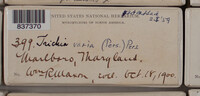 837370
UNITED STATES NATIONAL HERBARIUM
399. Trichia varia (Pers.) Pers
Marlboro, Maryland.
Wm R. Maxon, coll. Oct. 18, 1900.